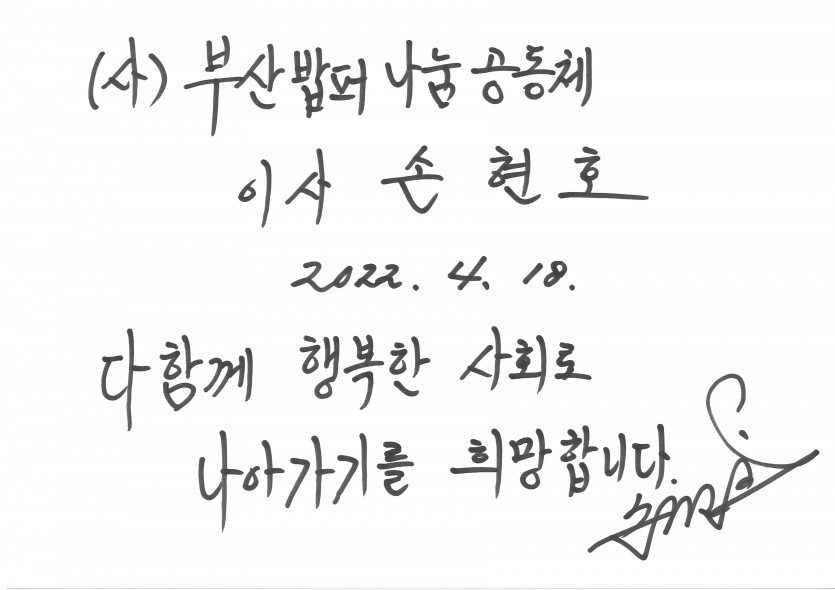 (사) 부산밥퍼나눔공동체
이사 손현호
2022. 4. 18.
다함께 행복한 사회로
나아가기를 희망합니다.